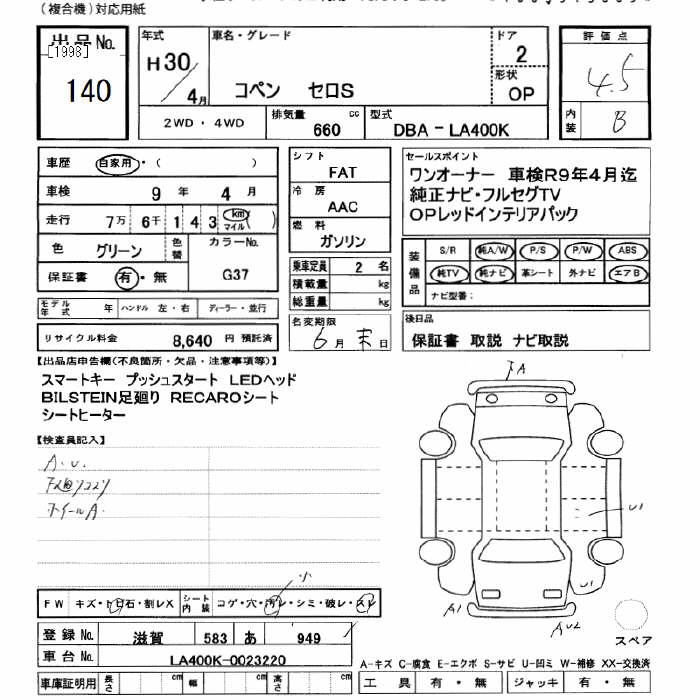 (複合機)対応用紙
出品No.
[1998]
140
年式
H30
4月
車名・グレード
コペン セロS
ドア
2
形状
OP
評価点
4.5
内装
B
2WD・4WD
排気量
660
cc
型式
DBA - LA400K
車歴 自家用・( )
車検 9年 4月
走行 7万 6千 1 4 3 km マイル ( )
色 グリーン
色替
カラーNo.
G37
保証書 有・無
モデル年式 年
ハンドル 左・右
ディーラー・並行
リサイクル料金 8,640 円 預託済
シフト
FAT
冷房
AAC
燃料
ガソリン
乗車定員 2 名
積載量 kg
総重量 kg
名変期限
6月 末日
セールスポイント
ワンオーナー 車検R9年4月迄
純正ナビ・フルセグTV
OPレッドインテリアパック
装備品
S/R 純A/W P/S P/W ABS
純TV 純ナビ 革シート 外ナビ エアB
ナビ型番:
後日品
保証書 取説 ナビ取説
【出品店申告欄(不良箇所・欠品・注意事項等)】
スマートキー プッシュスタート LEDヘッド
BILSTEIN足廻り RECAROシート
シートヒーター
【検査員記入】
A.U.
ホイールA.
A
U1
U1
A1
AU2
スペア
小
FW キズ・トビ石・割レX
シート内装 コゲ・穴・汚レ・シミ・破レ・スレ
登録No. 滋賀 583 あ 949
車台No. LA400K-0023220
車庫証明用 長さ cm 幅 cm 高さ cm
A-キズ C-腐食 E-エクボ S-サビ U-凹ミ W-補修 XX-交換済
工具 有・無 ジャッキ 有・無